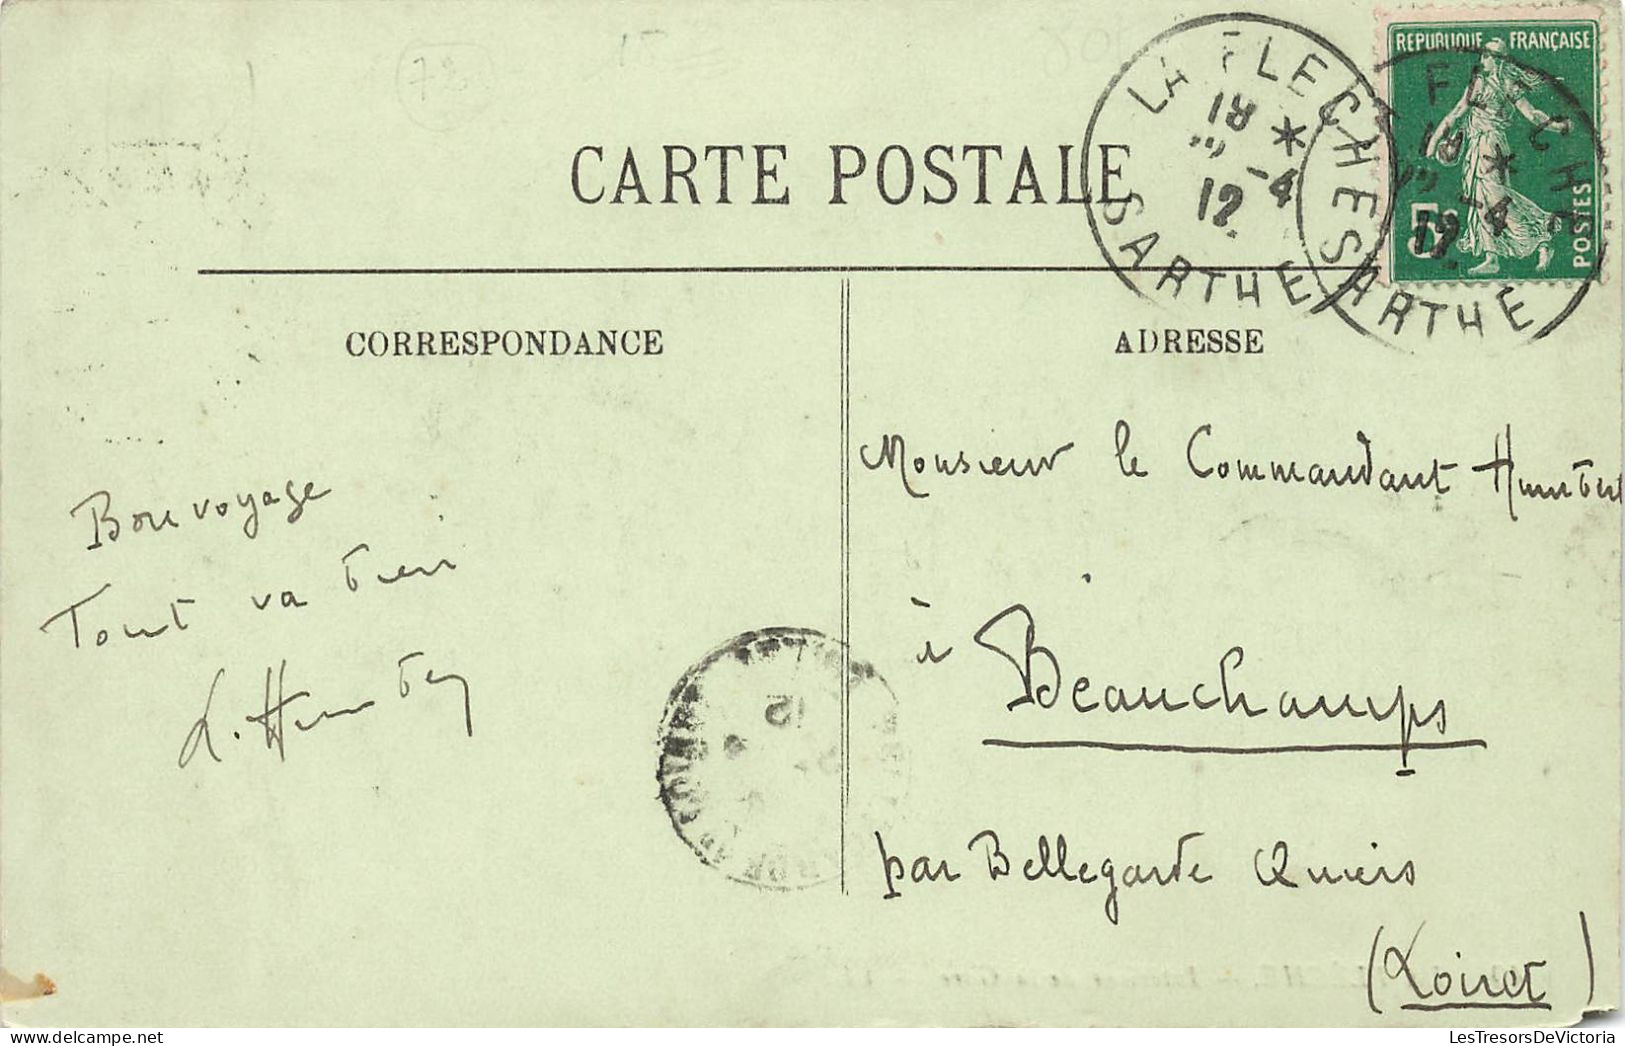 CARTE POSTALE
REPUBLIQUE FRANÇAISE
5c
POSTES
LA FLECHE
18
*
3 -4
12
SARTHE
FLECHE
18
*
-4
12
SARTHE
CORRESPONDANCE
Bon voyage
Tout va bien
L. Humbert
ADRESSE
Monsieur le Commandant Humbert
à
Beauchamps
par Bellegarde Quiers
(Loiret)
LesTresorsDeVictoria